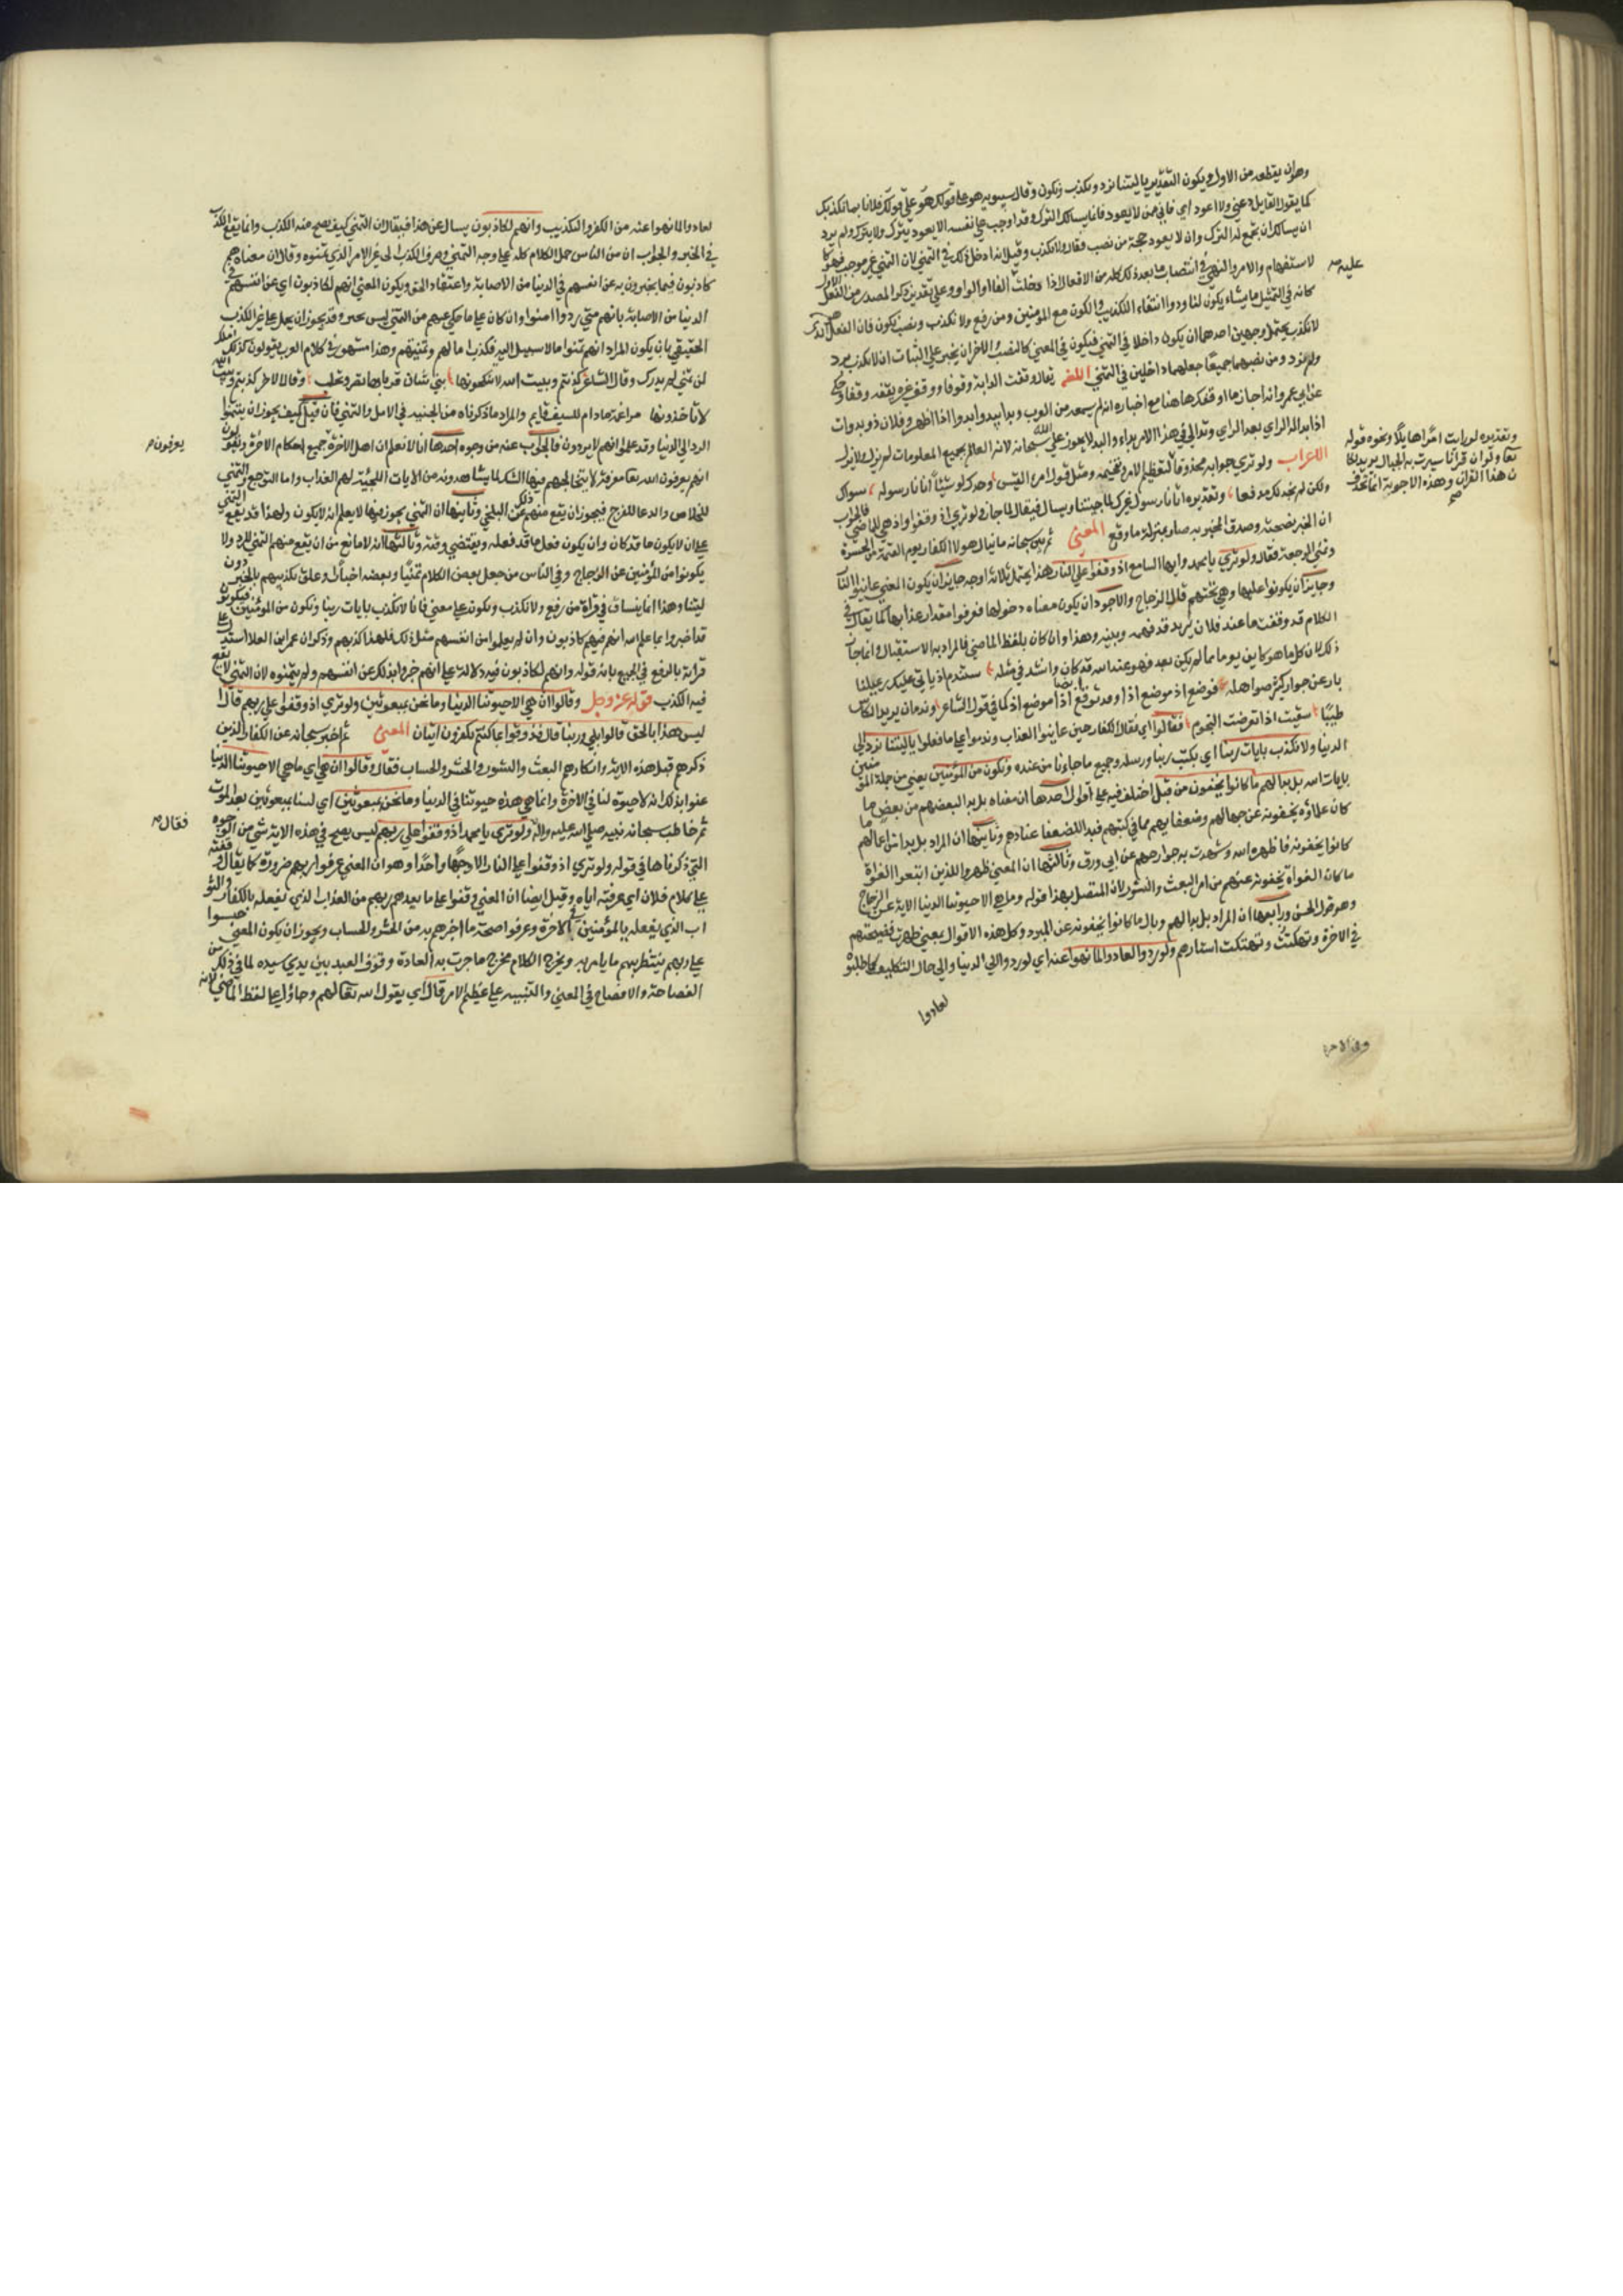 وهو ان يقطعه من الاول ويكون التقدير يا ليتنا نرد ونكذب ونكون وقال سيبويه هو على قولك
كما يقول القايل دعني ولا اعود اي فاني ممن لا يعود فانما يسالك الترك وقد اوجب على نفسه الا يعود ترك ولا يترك ولم يرد
ان يسالك ان يجمع له الترك وان لا يعود حجة من نصب فقال ولا نكذب وقيل انه ادخل ذلك في التمني لان التمني غير موجب فهو كا
لاستفهام والامر والنهي في انتصاب ما بعد ذلك كله من الافعال اذا دخلت الفا او الواو وعلى تقدير ذكر المصدر من الفعل الاول
عليه
كانه في التمثيل ما يشاء يكون لنا رد وانتفاء التكذيب والكون مع المؤمنين ومن رفع ولا نكذب ونصب نكون فان الفعل الذي هو
لا نكذب يحتمل وجهين احدهما ان يكون داخلا في التمني فيكون في المعنى كالنصب والاخر ان يخبر على الثبات ان لا نكذب نرد
ولم نرد ومن نصبهما جميعا جعلهما داخلين في التمني اللغه يقال وقفت الدابة وقوفا ووقف غيره يقفه وقفا وحكي
عن ابي عمرو انه اجاز ما اوقفك هاهنا مع اخباره انه لم يسمعه من العرب وبدا يبدو بدوا اذا ظهر وفلان ذو بدوات
اذا بدا له الراي بعد الراي وبدا لي في هذا الامر بداء والبدا لا يجوز على الله سبحانه لانه العالم بجميع المعلومات لم يزل ولا يزال
الاعراب ولو ترى جوابه محذوف تعظيم الامر وتفخيمه ومثله قول امرء القيس وجدك لو شيئا اتانا رسوله سواك
وتقديره لو رايت امرا هايلا ونحوه قوله
تعا ولو ان قرانا سيرت به الجبال يريد لكا
ن هذا القران وهذه الاجوبة انما تحذف
ولكن لم نجد لك مدفعا وتقديره اتانا رسول غيرك لما جيتنا ويسال فيقال لم جاز ولو ترى اذ وقفوا واذ هي للماضي فالجواب
ان الخبر بصحته وصدق المخبر به صار بمنزلة ما وقع المعنى ثم بين سبحانه ما ينال هولا الكفار يوم القيمة من الحسرة
وتمني الرجعة فقال ولو ترى يا محمد وايها السامع اذ وقفوا على النار فهذا يحتمل ثلاثة اوجه جايز ان يكون المعنى عاينوا النا
وجايز ان يكونوا عليها وهي تحتهم قال الزجاج والاجود ان يكون معناه دخولها فعرفوا مقدار عذابها كما يقال في
الكلام قد وقفت ما عند فلان يريد قد فهمه وتبينه وهذا وان كان بلفظ الماضي فالمراد به الاستقبال وانما جاز
ذلك لان كل ما هو كاين يوما مما لم يكن بعد فهو عند الله قد كان وانشد في مثله ستندم اذ ياتي عليك رعيلنا
بارعن جرار كثير صواهله فوضع اذ موضع اذا وقد توقع ايضا اذا موضع اذ كما في قول الشاعر وندمان يزيد الكاس
طيبا سقيت اذا تعرضت النجوم فقالوا اي فقال الكفار حين عاينوا العذاب وندموا على ما فعلوا يا ليتنا نرد الى
الدنيا ولا نكذب بايات ربنا اي بكتب ربنا ورسله وجميع ما جاءنا من عنده ونكون من المؤمنين يعني من جملة المؤمنين
بايات الله بل بدا لهم ما كانوا يخفون من قبل اختلف فيه على اقوال احدها ان معناه بل بدا لبعضهم من بعض ما
كان علماؤه يخفونه عن جهالهم وضعفايهم مما في كتبهم فبدا للضعفا عنادهم وثانيها ان المراد بل بدا من اعمالهم ما
كانوا يخفونه فاظهره الله وشهدت به جوارحهم عن ابي روق وثالثها ان المعنى ظهر للذين اتبعوا الغواة
ما كان الغواة يخفونه عنهم من امر البعث والنشور لان المتصل بهذا قوله وما هي الا حيوتنا الدنيا الاية عن الزجاج
وهو قول الحسن ورابعها ان المراد بل بدا لهم وبال ما كانوا يخفونه عن المبرد وكل هذه الاقوال بمعنى ظهرت فضيحتهم
في الاخرة وتهتكت استارهم ولو ردوا لعادوا لما نهوا عنه اي لو ردوا الى الدنيا والى حال التكليف كما طلبوه
لعادوا
لعادوا لما نهوا عنه من الكفر والتكذيب وانهم لكاذبون يسال عن هذا فيقال ان التمني كيف يصح منه الكذب وانما يقع الكذب
في الخبر والجواب ان من الناس حمل الكلام كله على وجه التمني وصرف الكذب الى غير الامر الذي تمنوه وقال ان معناه هم
كاذبون فيما يخبرون به عن انفسهم في الدنيا من الاصابة واعتقاد الحق ويكون المعنى انهم لكاذبون اي عن انفسهم في
الدنيا من الاصابة بانهم متى ردوا امنوا وان كان على ما حكي عنهم من التمني ليس بخبر وقد يجوز ان يحمل على غير الكذب
الحقيقي بان يكون المراد انهم تمنوا ما لا سبيل اليه فكذب املهم وتمنيهم وهذا مشهور في كلام العرب يقولون كذبك املك
لمن تمنى لم يدرك وقال الشاعر كذبتم وبيت الله لا تنكحونها بني شاب قرناها تصر وتحلب وقال الاخر كذبتم وبيت الله
لا تاخذونها مراغمة ما دام للسيف قايم والمراد ما ذكرناه من الخيبة في الامل والتمني فان قيل كيف يجوز ان يتمنوا
الرد الى الدنيا وقد علموا انهم لا يردون فالجواب عنه من وجوه احدها انا لا نعلم ان اهل الاخرة جميع احكام الاخرة ونقول
يعرفون
انهم يعرفون الله تعا معرفة لا يتخالجهم فيها الشك لما يشاهدونه من الايات الملجئة لهم العذاب واما التوجع والتمني
للخلاص والدعا للفرج فيجوز ان يقع منهم ذلك عن البلخي وثانيها ان التمني يجوز فيما لا يعلم انه لا يكون ولهذا قد يقع التمني
على ان لا يكون ما قد كان وان يكون فعل ما قد فعله ويقتضي وقته وثالثها انه لا مانع من ان يقع منهم التمني للرد ولا
يكونوا من المؤمنين عن الزجاج وفي الناس من جعل بعض الكلام تمنيا وبعضه اخبارا وعلق تكذيبهم بالخبر دون
ليتنا وهذا انما ينساق في قراة من رفع ولا نكذب ونكون على معنى فانا لا نكذب بايات ربنا ونكون من المؤمنين فيكونون
قد اخبروا بما علم الله انهم فيه كاذبون وان لم يعلموا من انفسهم مثل ذلك فلهذا كذبهم وذكر ان عمرو ابن العلا استدل على
قراته بالرفع في الجميع بانه قوله وانهم لكاذبون فيه دلالة على انهم اخبروا بذلك عن انفسهم ولم يتمنوه لان التمني لا يقع
فيه الكذب قوله عز وجل وقالوا ان هي الا حيوتنا الدنيا وما نحن بمبعوثين ولو ترى اذ وقفوا على ربهم قال ا
ليس هذا بالحق قالوا بلى وربنا قال فذوقوا بما كنتم تكفرون ايتان المعنى ثم اخبر سبحانه عن الكفار الذين
ذكرهم قبل هذه الاية وانكارهم البعث والنشور والحشر والحساب فقال وقالوا ان هي اي ما هي الا حيوتنا الدنيا
عنوا بذلك انه لا حيوة لنا في الاخرة وانما هي هذه حيوتنا في الدنيا وما نحن بمبعوثين اي لسنا بمبعوثين بعد الموت
ثم خاطب سبحانه نبيه صلى الله عليه واله ولو ترى يا محمد اذ وقفوا على ربهم ليس يصح في هذه الاية شي من الوجوه
فقال
التي ذكرناها في قوله ولو ترى اذ وقفوا على النار الا وجها واحدا وهو ان المعنى عرفوا ربهم ضرورة كما يقال وقفته
على كلام فلان اي عرفته اياه وقيل ايضا ان المعنى وقفوا على ما يعدهم ربهم من العذاب الذي يفعله بالكفار والثو
اب الذي يفعله بالمؤمنين في الاخرة وعرفوا صحة ما اخبرهم به من الحشر والحساب ويجوز ان يكون المعنى حبسوا
على ربهم ينتظر بهم ما يامر به ويخرج الكلام مخرج ما جرت به العادة وقوف العبد بين يدي سيده لما في ذلك من
الفصاحة والافصاح في المعنى والتنبيه على عظيم الامر قال اي يقول الله تعا لهم وجاؤا على لفظ الماضي لانه